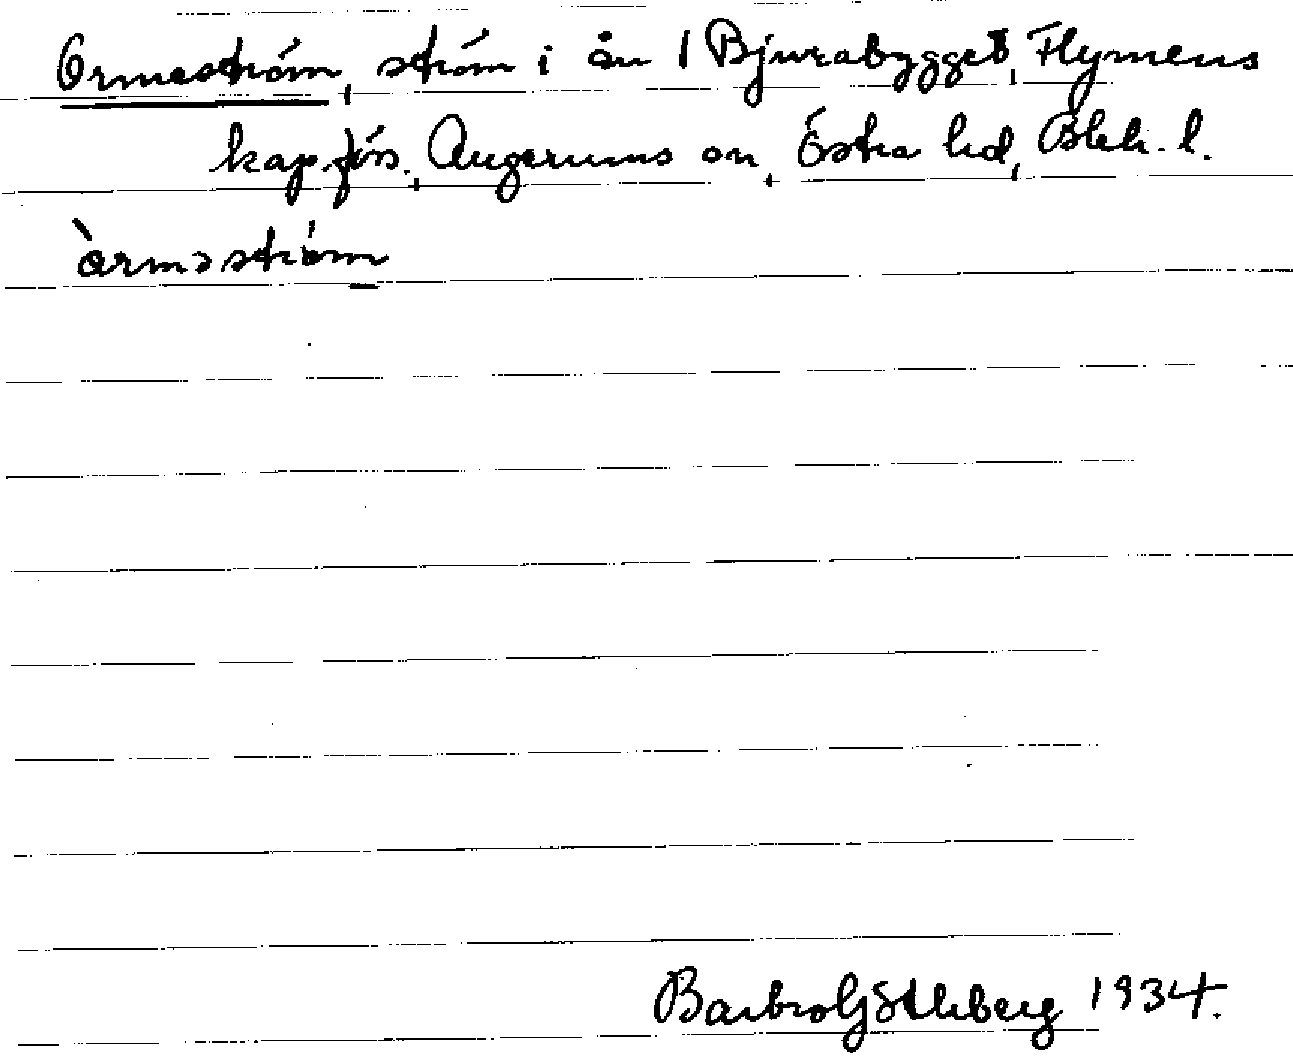 Ormeström, ström i ån i Bjurabygget, Flymens
kap.förs., Augerums sn, Östra hd, Blek. l.
òrməstróm
Barbro Götleberg 1934.